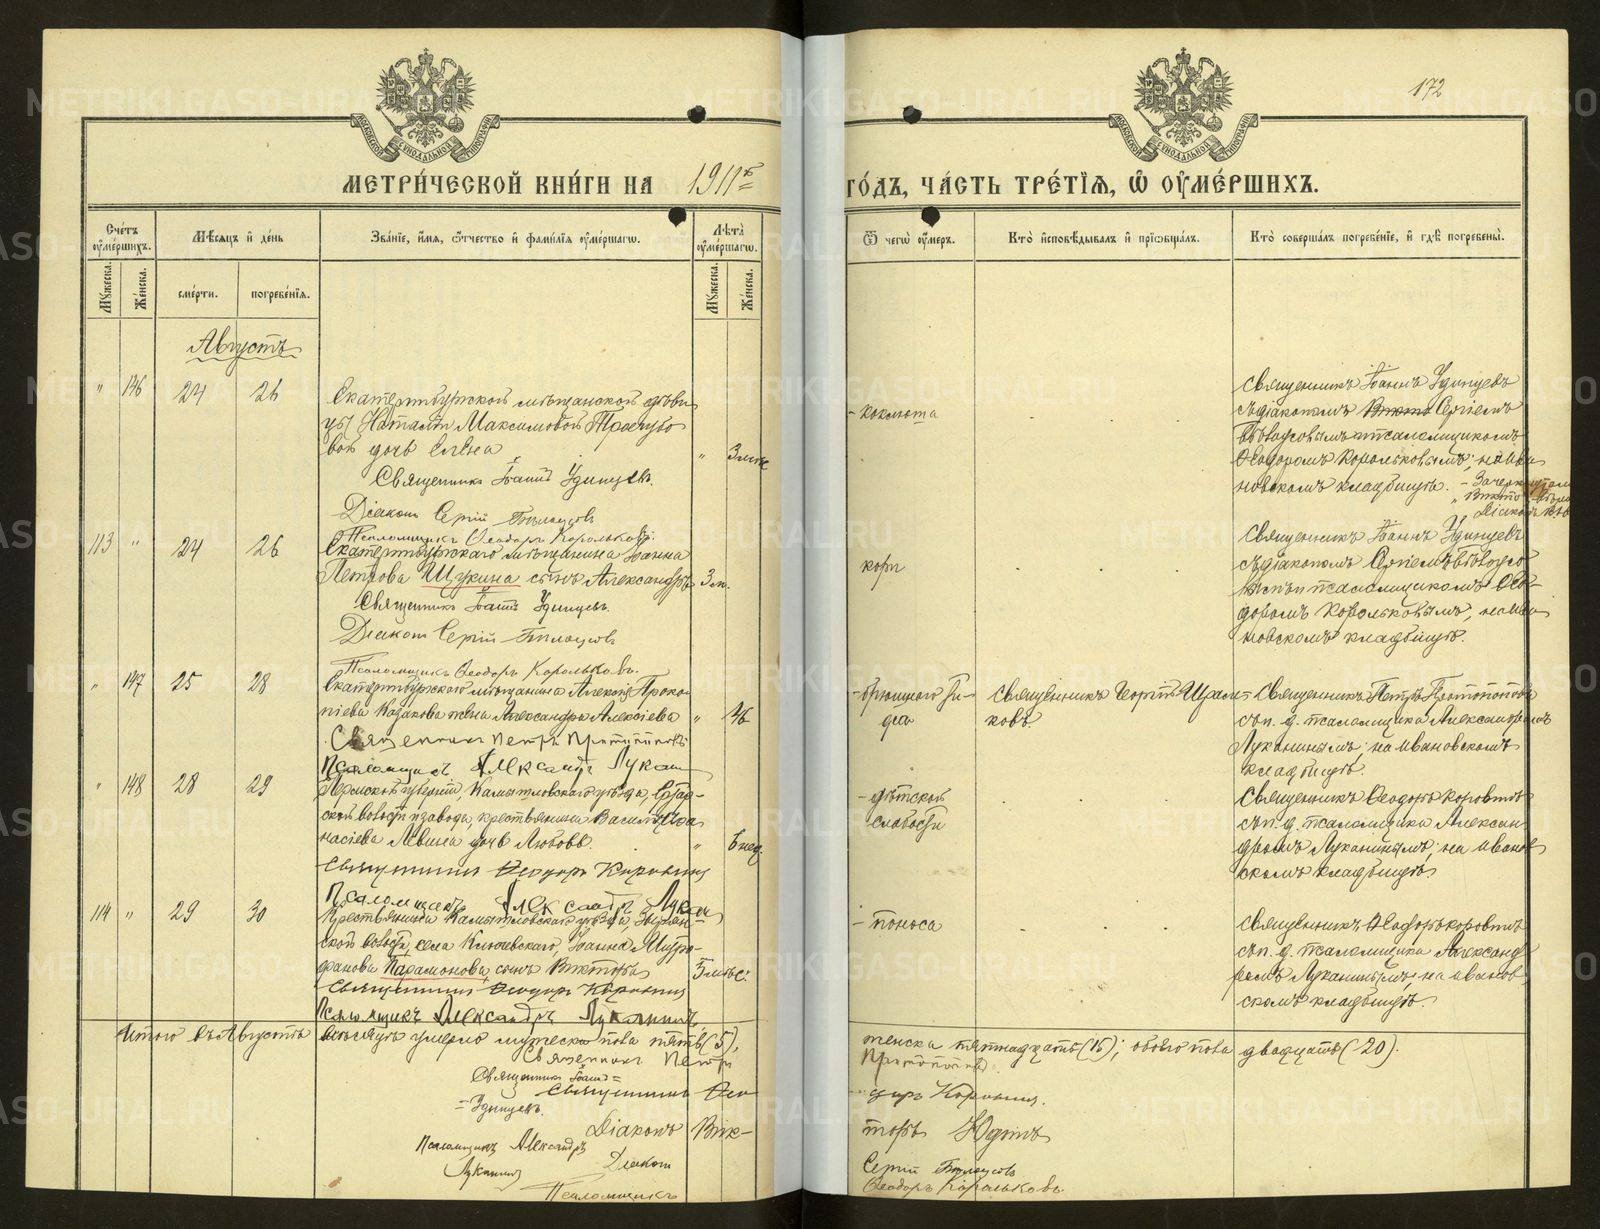 172
МЕТРИ́ЧЕСКОЙ КНИ́ГИ НА 1911й ГО́ДЪ, ЧА́СТЬ ТРЕ́ТІЯ, Ѿ ОУ҆МЕ́РШИХЪ.
Сче́тъ оу҆ме́ршихъ.
Мѣ́сяцъ и҆ де́нь
Зва́ніе, и҆́мя, о҆́тчество и҆ фами́лія оу҆ме́ршагѡ.
Лѣ́та оу҆ме́ршагѡ.
Ѿ чегѡ̀ оу҆́меръ.
Кто̀ и҆сповѣ́дывалъ и҆ прїѡбща́лъ.
Кто̀ соверша́лъ погребе́ніе, и҆ гдѣ̀ погребены̀.
Му́жеска.
Же́нска.
сме́рти.
погребе́нія.
Му́жеска.
Же́нска.
Августъ
" 146 24 26
Екатеринбургской мѣщанской дѣви
цы Наталіи Максимовой
вой дочь Елена
" 3 мѣс
Священникъ Іоаннъ Удинцевъ.
Діаконъ Сергій Бѣлоусовъ
Псаломщикъ Ѳеодоръ Корольковъ.
- коклюша
Священникъ Іоаннъ Удинцевъ
съ діакономъ Сергіемъ
Бѣлоусовымъ и псаломщикомъ
Ѳеодоромъ Корольковымъ; на Ива
новскомъ кладбищѣ.
113 " 24 26
Екатеринбургскаго мѣщанина Іоанна
Петрова Щукина сынъ Александръ 3 м.
Священникъ Іоаннъ Удинцевъ.
Діаконъ Сергій Бѣлоусовъ
Псаломщикъ Ѳеодоръ Корольковъ.
кори
Священникъ Іоаннъ Удинцевъ
съ діакономъ Сергіемъ Бѣлоусо
вымъ и псаломщикомъ Ѳео-
доромъ Корольковымъ, на Ива
новскомъ кладбищѣ.
" 147 25 28
Екатеринбургскаго мѣщанина Алексія Проко
піева Казакова жена Александра Алексіева " 46
Священникъ Петръ Протопоповъ
Псаломщикъ Александръ Лукан
- брюшного Ти-
фа
Священникъ Георгій
ковъ.
Священникъ Петръ Протопоповъ
съ и. д. псаломщика Александромъ
Луканинымъ; на Ивановскомъ
кладбищѣ.
" 148 28 29
Пермской губерніи, Камышловскаго уѣзда,
ской волости и завода, крестьянина Василія Аѳа
насіева Левина дочь Любовь. " 6 нед
Священникъ Ѳеодоръ Коровинъ
Псаломщикъ Александръ Лукан
- дѣтской
слабости
Священникъ Ѳеодоръ Коровинъ
съ и. д. псаломщика Алексан
дромъ Луканинымъ; на Иванов
скомъ кладбищѣ.
114 " 29 30
Крестьянина Камышловскаго уѣзда,
ской волости, села Ключевскаго, Іоанна Митро-
фанова Парамонова, сынъ Викторъ 5 мѣс.
Священникъ Ѳеодоръ Коровинъ
Псаломщикъ Александръ Луканинъ.
- поноса
Священникъ Ѳеодоръ Коровинъ
съ и. д. псаломщика Александ
ромъ Луканинымъ, на Иванов
скомъ кладбищѣ.
Итого въ Августѣ мѣсяцѣ умерло мужеска пола пять (5), женска пятнадцать (15); обоего пола двадцать (20).
Священникъ Петръ Протопоповъ
Священникъ Іоаннъ
Удинцевъ.
Священникъ Ѳеодоръ Коровинъ.
Діаконъ Викторъ Юдинъ
Псаломщикъ Александръ
Луканинъ
Діаконъ Сергій Бѣлоусовъ
Псаломщикъ Ѳеодоръ Корольковъ.
METRIKI.GASO-URAL.RU